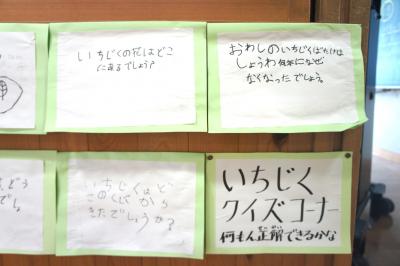 いちじくの花はどこ
にあるでしょう?
おうわしのいちじくばたけは
しょうわ何年になぜ
なくなったでしょう。
いちじくはど
このくにから
きたでしょうか?
いちじく
クイズコーナー
何もん正解できるかな